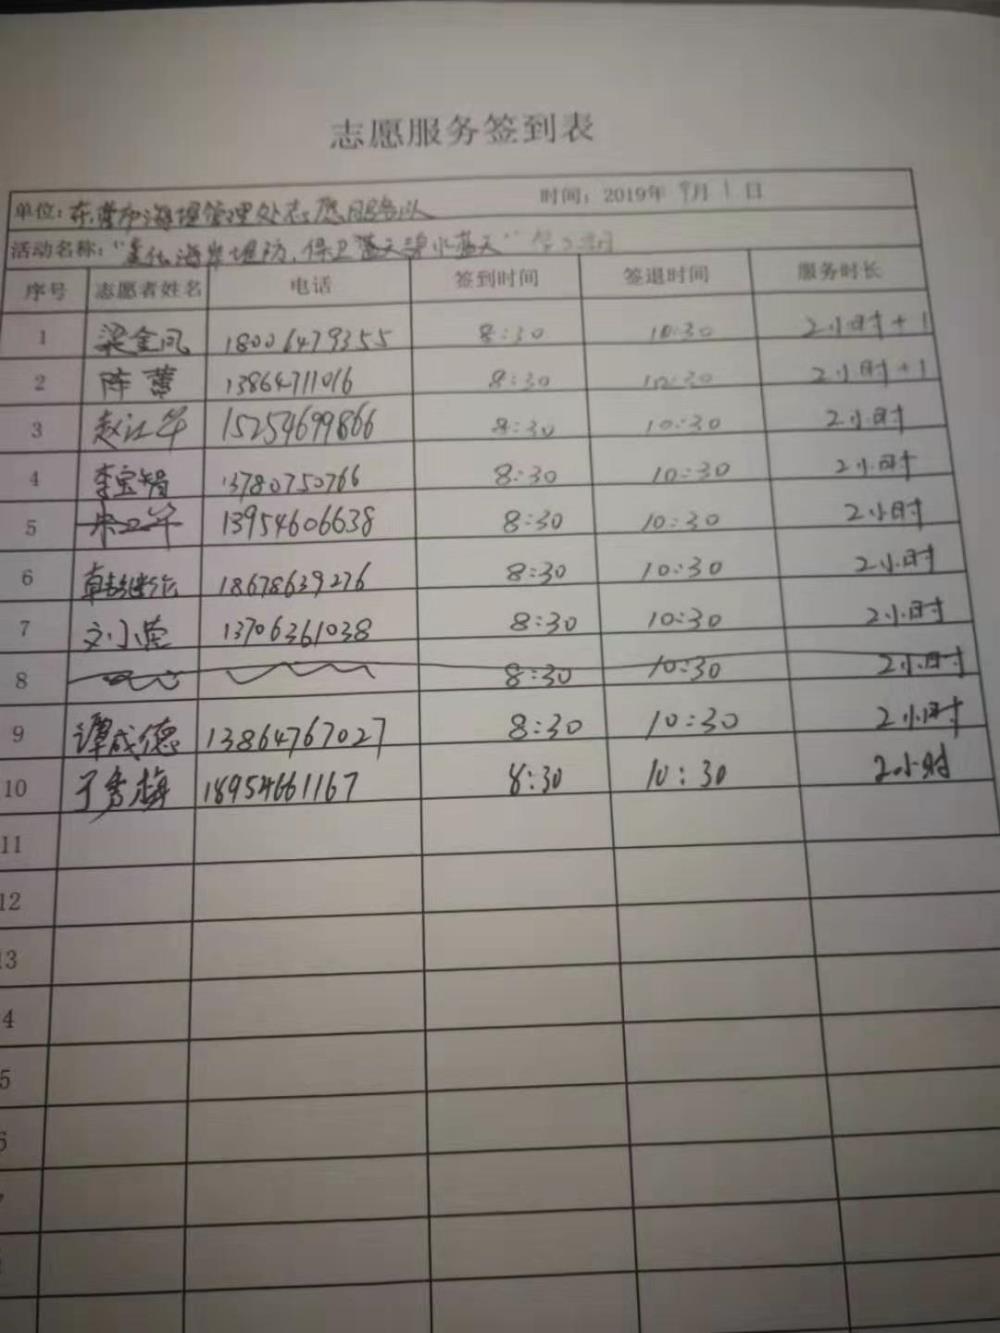 志愿服务签到表
单位：东营市海堤管理处志愿服务队 时间：2019年 9月 1日
活动名称：“美化海岸堤防，保卫蓝天碧水蓝天”
序号 志愿者姓名 电话 签到时间 签退时间 服务时长
1 梁金凤 18006479355 8:30 10:30 2小时+1
2 陈蕾 13864711016 8:30 10:30 2小时+1
3 赵江华 15254699866 8:30 10:30 2小时
4 李宝智 13780750766 8:30 10:30 2小时
5 宋卫华 13954606638 8:30 10:30 2小时
6 18678639276 8:30 10:30 2小时
7 刘小莹 13706361038 8:30 10:30 2小时
8 8:30 10:30 2小时
9 谭成德 13864767027 8:30 10:30 2小时
10 于秀梅 18954661167 8:30 10:30 2小时
11
12
13
4
5
6
7